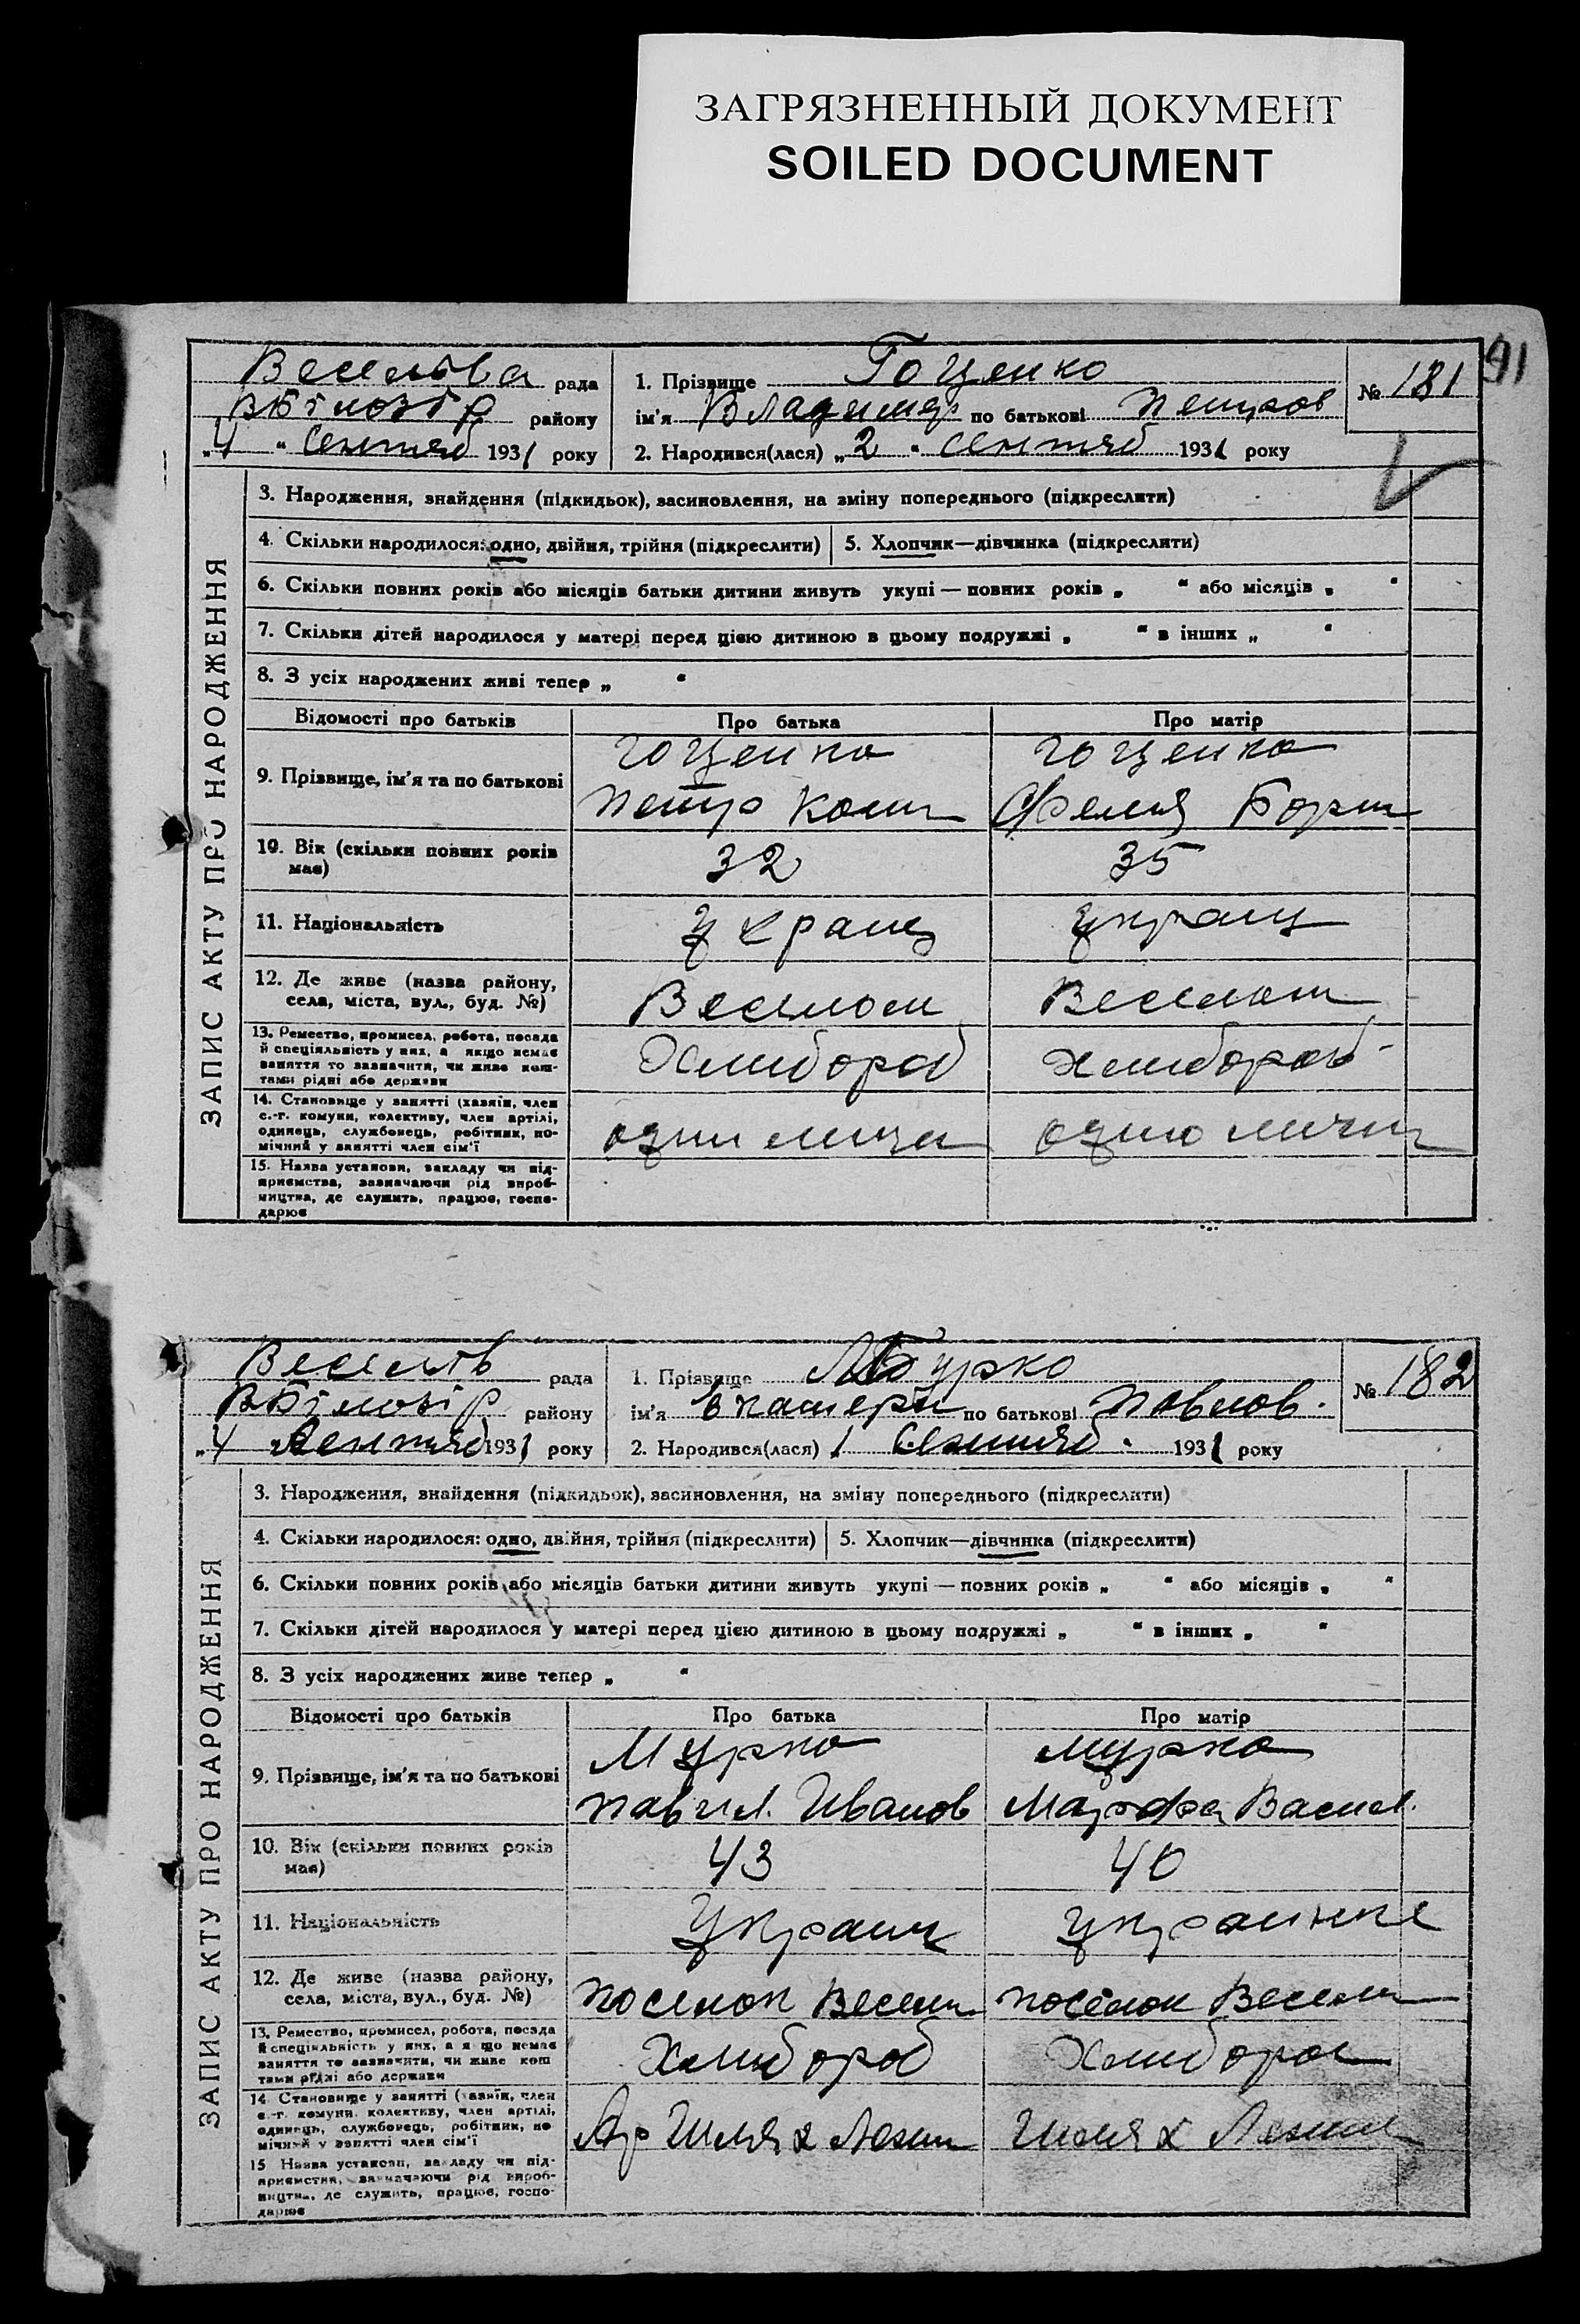 ЗАГРЯЗНЕННЫЙ ДОКУМЕНТ
SOILED DOCUMENT
91
рада
ВБілозір району
„4“ Сентяб 1931 року
1. Прізвище Гоценко
ім'я Владимир по батькові Петров
2. Народився(лася) „2“ сентяб 1931 року
№ 181
ЗАПИС АКТУ ПРО НАРОДЖЕННЯ
3. Народження, знайдення (підкидьок), засиновлення, на зміну попереднього (підкреслити)
4. Скільки народилося: одно, двійня, трійня (підкреслити) 5. Хлопчик—дівчинка (підкреслити)
6. Скільки повних років або місяців батьки дитини живуть укупі — повних років „ “ або місяців „ “
7. Скільки дітей народилося у матері перед цією дитиною в цьому подружжі „ “ в інших „ “
8. З усіх народжених живі тепер „ “
Відомості про батьків Про батька Про матір
9. Прізвище, ім'я та по батькові
Гоценко Гоценко
Петро
10. Вік (скільки повних років має)
32 35
11. Національність
Украинц украинц
12. Де живе (назва району,
села, міста, вул., буд. №)
13. Ремество, промисел, робота, посада
й спеціяльність у них, а якщо немає
заняття то зазначити, чи живе кош-
тами рідні або держави
Хлибороб хлибороб
14. Становище у занятті (хазяїн, член
с.-г. комуни, колективу, член артілі,
одинець, службовець, робітник, по-
мічний у занятті член сім'ї
15. Назва установи, закладу чи під-
приємства, зазначаючи рід вироб-
ництва, де служить, працює, госпо-
дарює
рада
ВБілозір району
„4 Сентяб 1931 року
1. Прізвище Мурко
ім'я Екатерин по батькові Павлов.
2. Народився(лася) 1 Сентяб. 1931 року
№ 182
ЗАПИС АКТУ ПРО НАРОДЖЕННЯ
3. Народження, знайдення (підкидьок), засиновлення, на зміну попереднього (підкреслити)
4. Скільки народилося: одно, двійня, трійня (підкреслити) 5. Хлопчик—дівчинка (підкреслити)
6. Скільки повних років або місяців батьки дитини живуть укупі — повних років „ “ або місяців „ “
7. Скільки дітей народилося у матері перед цією дитиною в цьому подружжі „ “ в інших „ “
8. З усіх народжених живе тепер „ “
Відомості про батьків Про батька Про матір
9. Прізвище, ім'я та по батькові
Мурко Мурко
Павил. Иванов Марфа Васил.
10. Вік (скільки повних років
має)
43 40
11. Національність
Украинц украинке
12. Де живе (назва району,
села, міста, вул., буд. №)
поселок поселок
13. Ремество, промисел, робота, посада
й спеціяльність у них, а якщо немає
заняття то зазначити, чи живе кош
тами рідні або держави
Хлибороб Хлибороб
14. Становище у занятті (хазяїн, член
с.-г. комуни, колективу, член артілі,
одинець, службовець, робітник, по
мічний у занятті член сім'ї
15 Назва установи, закладу чи під-
приємства, зазначаючи рід вироб-
ництва, де служить, працює, госпо-
дарює